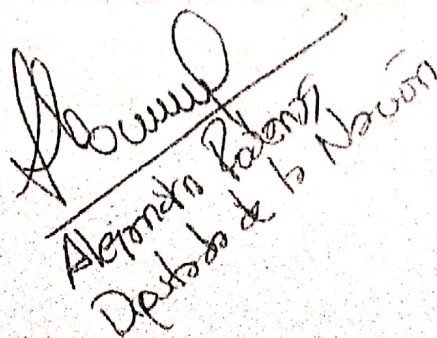 Alejandra Rodenas
Diputada de la Nación